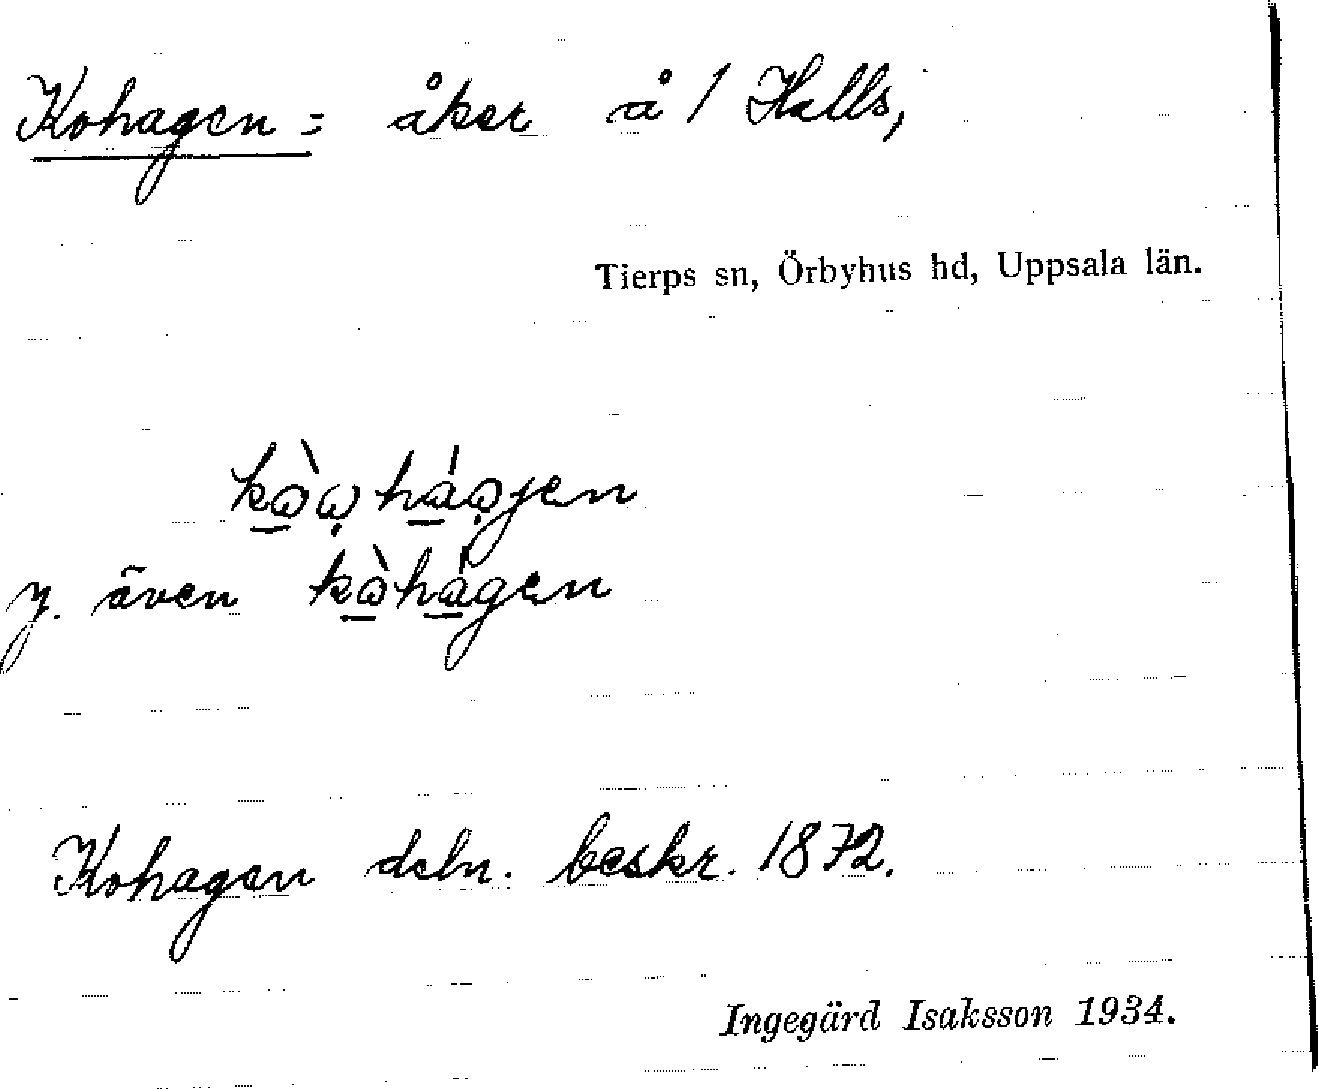 Kohagen = åker å 1 Halls,
Tierps sn, Örbyhus hd, Uppsala län.
y. även
Kohagen deln. beskr. 1872.
Ingegärd Isaksson 1934.